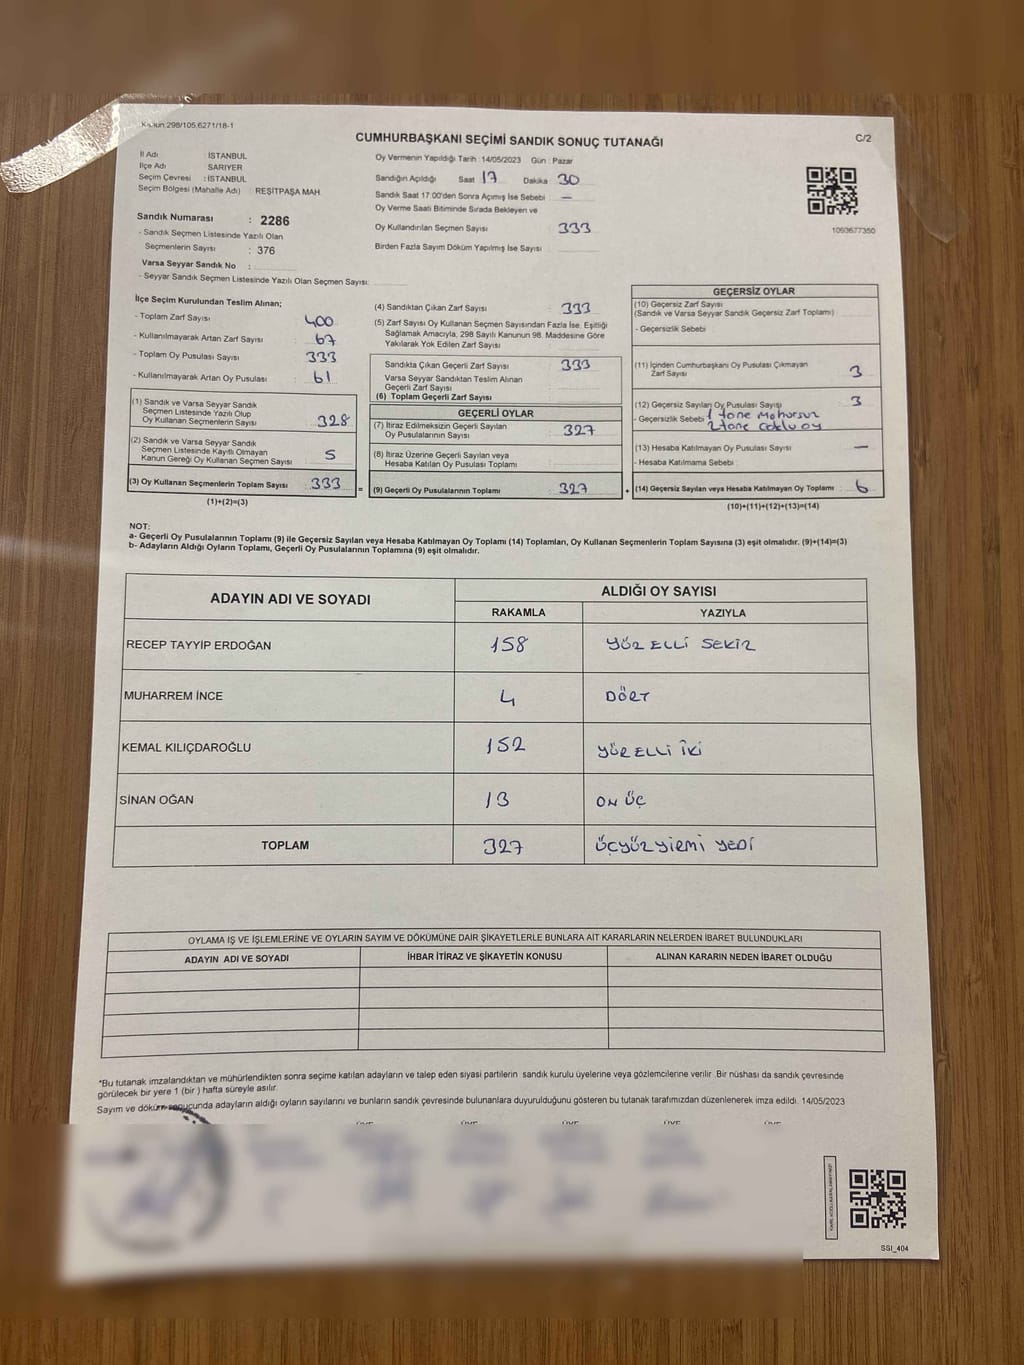 Kanun:298/105,6271/18-1
CUMHURBAŞKANI SEÇİMİ SANDIK SONUÇ TUTANAĞI
C/2
İl Adı : İSTANBUL
İlçe Adı : SARIYER
Seçim Çevresi : İSTANBUL
Seçim Bölgesi (Mahalle Adı) : REŞİTPAŞA MAH
Sandık Numarası : 2286
- Sandık Seçmen Listesinde Yazılı Olan
Seçmenlerin Sayısı : 376
Varsa Seyyar Sandık No :
- Seyyar Sandık Seçmen Listesinde Yazılı Olan Seçmen Sayısı:
Oy Vermenin Yapıldığı Tarih : 14/05/2023 Gün : Pazar
Sandığın Açıldığı Saat 17 Dakika 30
Sandık Saat 17:00'den Sonra Açımış İse Sebebi : —
Oy Verme Saati Bitiminde Sırada Bekleyen ve
Oy Kullandırılan Seçmen Sayısı : 333
Birden Fazla Sayım Döküm Yapılmış İse Sayısı :
1093677350
İlçe Seçim Kurulundan Teslim Alınan;
- Toplam Zarf Sayısı : 400
- Kullanılmayarak Artan Zarf Sayısı : 67
- Toplam Oy Pusulası Sayısı : 333
- Kullanılmayarak Artan Oy Pusulası : 61
(1) Sandık ve Varsa Seyyar Sandık
Seçmen Listesinde Yazılı Olup
Oy Kullanan Seçmenlerin Sayısı : 328
(2) Sandık ve Varsa Seyyar Sandık
Seçmen Listesinde Kayıtlı Olmayan
Kanun Gereği Oy Kullanan Seçmen Sayısı : 5
(3) Oy Kullanan Seçmenlerin Toplam Sayısı : 333 =
(1)+(2)=(3)
(4) Sandıktan Çıkan Zarf Sayısı : 333
(5) Zarf Sayısı Oy Kullanan Seçmen Sayısından Fazla İse, Eşitliği
Sağlamak Amacıyla, 298 Sayılı Kanunun 98. Maddesine Göre
Yakılarak Yok Edilen Zarf Sayısı :
Sandıkta Çıkan Geçerli Zarf Sayısı : 333
Varsa Seyyar Sandıktan Teslim Alınan
Geçerli Zarf Sayısı :
(6) Toplam Geçerli Zarf Sayısı :
GEÇERLİ OYLAR
(7) İtiraz Edilmeksizin Geçerli Sayılan
Oy Pusulalarının Sayısı : 327
(8) İtiraz Üzerine Geçerli Sayılan veya
Hesaba Katılan Oy Pusulası Toplamı :
(9) Geçerli Oy Pusulalarının Toplamı : 327 +
GEÇERSİZ OYLAR
(10) Geçersiz Zarf Sayısı
(Sandık ve Varsa Seyyar Sandık Geçersiz Zarf Toplamı) :
- Geçersizlik Sebebi :
(11) İçinden Cumhurbaşkanı Oy Pusulası Çıkmayan
Zarf Sayısı : 3
(12) Geçersiz Sayılan Oy Pusulası Sayısı : 3
- Geçersizlik Sebebi : 1 tane Mühürsüz
2 tane çoklu oy
(13) Hesaba Katılmayan Oy Pusulası Sayısı : —
- Hesaba Katılmama Sebebi :
(14) Geçersiz Sayılan veya Hesaba Katılmayan Oy Toplamı : 6
(10)+(11)+(12)+(13)=(14)
NOT:
a- Geçerli Oy Pusulalarının Toplamı (9) ile Geçersiz Sayılan veya Hesaba Katılmayan Oy Toplamı (14) Toplamları, Oy Kullanan Seçmenlerin Toplam Sayısına (3) eşit olmalıdır. (9)+(14)=(3)
b- Adayların Aldığı Oyların Toplamı, Geçerli Oy Pusulalarının Toplamına (9) eşit olmalıdır.
ADAYIN ADI VE SOYADI
ALDIĞI OY SAYISI
RAKAMLA YAZIYLA
RECEP TAYYİP ERDOĞAN 158 YÜZ ELLİ SEKİZ
MUHARREM İNCE 4 DÖRT
KEMAL KILIÇDAROĞLU 152 YÜZ ELLİ İKİ
SİNAN OĞAN 13 ON ÜÇ
TOPLAM 327 ÜÇYÜZYİRMİ YEDİ
OYLAMA İŞ VE İŞLEMLERİNE VE OYLARIN SAYIM VE DÖKÜMÜNE DAİR ŞİKAYETLERLE BUNLARA AİT KARARLARIN NELERDEN İBARET BULUNDUKLARI
ADAYIN ADI VE SOYADI İHBAR İTİRAZ VE ŞİKAYETİN KONUSU ALINAN KARARIN NEDEN İBARET OLDUĞU
*Bu tutanak imzalandıktan ve mühürlendikten sonra seçime katılan adayların ve talep eden siyasi partilerin sandık kurulu üyelerine veya gözlemcilerine verilir. Bir nüshası da sandık çevresinde
görülecek bir yere 1 (bir ) hafta süreyle asılır.
Sayım ve döküm sonucunda adayların aldığı oyların sayılarını ve bunların sandık çevresinde bulunanlara duyurulduğunu gösteren bu tutanak tarafımızdan düzenlenerek imza edildi. 14/05/2023
ÜYE ÜYE ÜYE ÜYE ÜYE
SSI_404